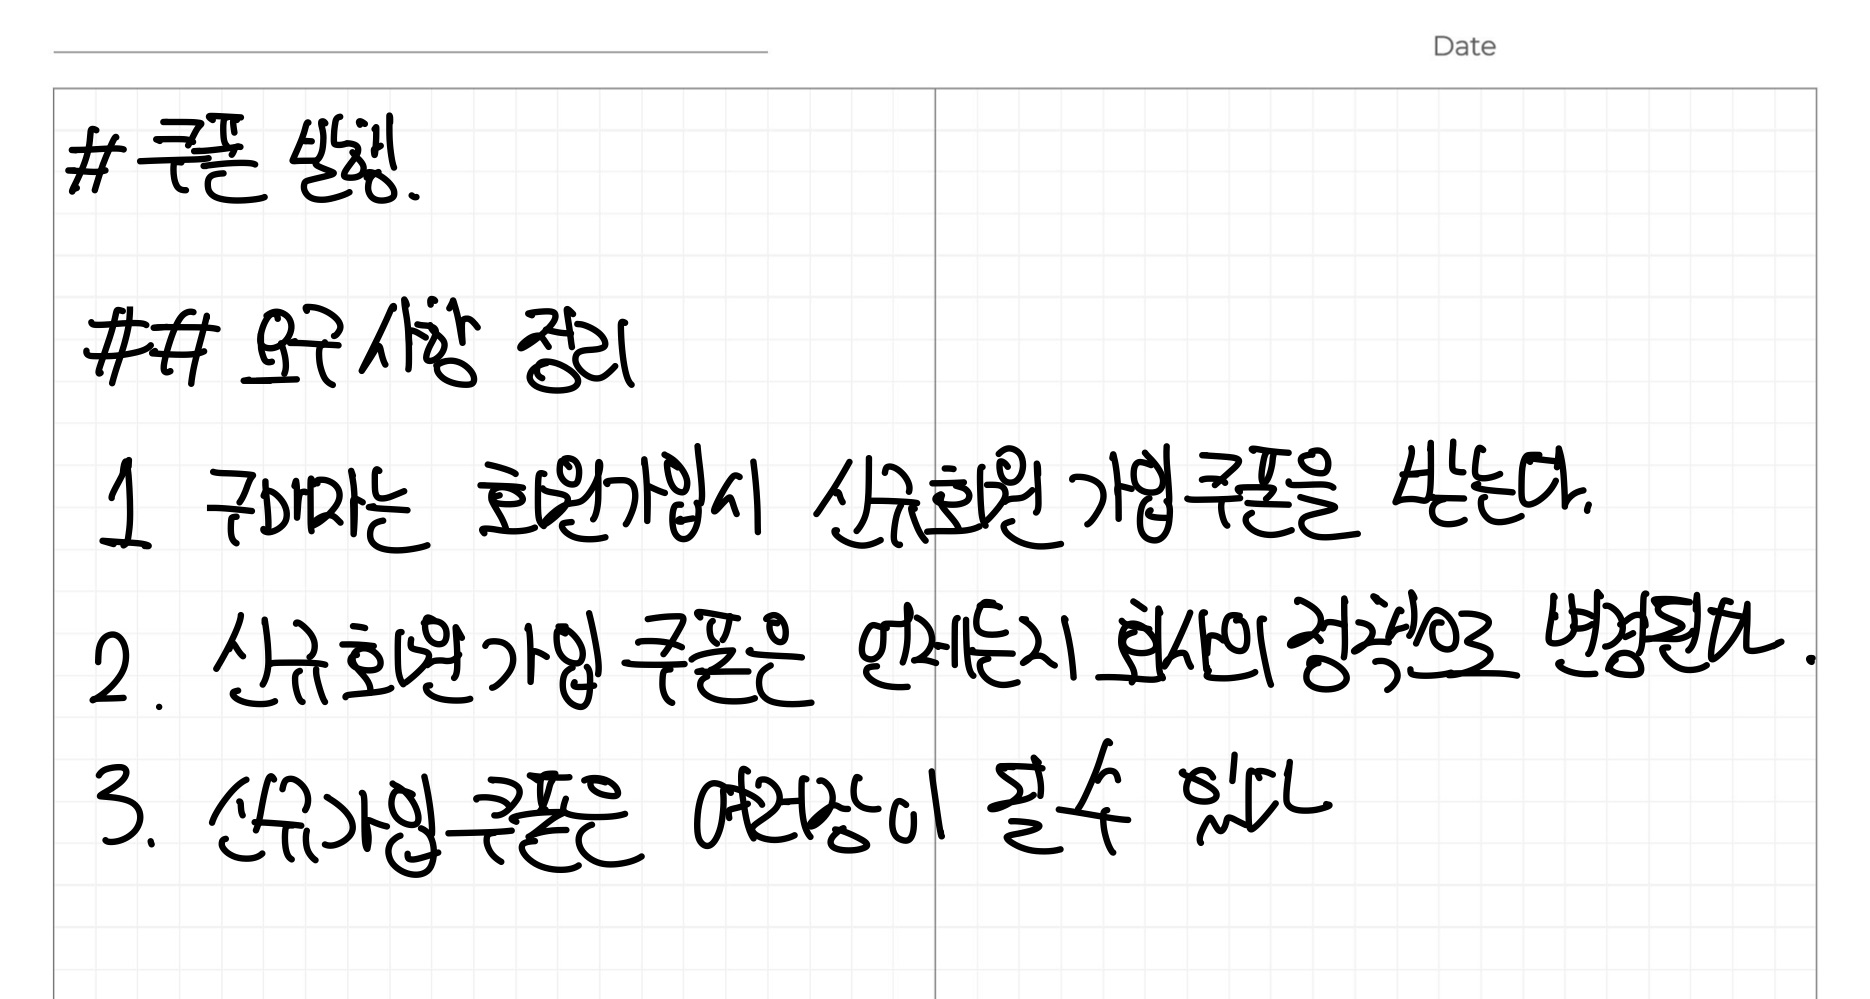 Date
# 쿠폰 발행.
## 요구사항 정리
1 구매자는 회원가입시 신규회원 가입쿠폰을 받는다.
2. 신규회원가입 쿠폰은 언제든지 회사의 정책으로 변경된다.
3. 신규가입쿠폰은 여러장이 될 수 있다